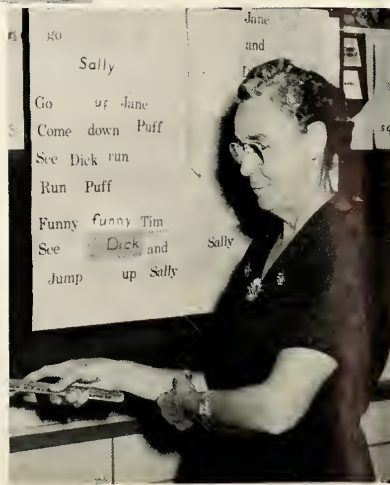 go
Sally
Go up Jane
Come down Puff
See Dick run
Run Puff
Funny funny Tim
See Dick and Sally
Jump up Sally
Jane
and